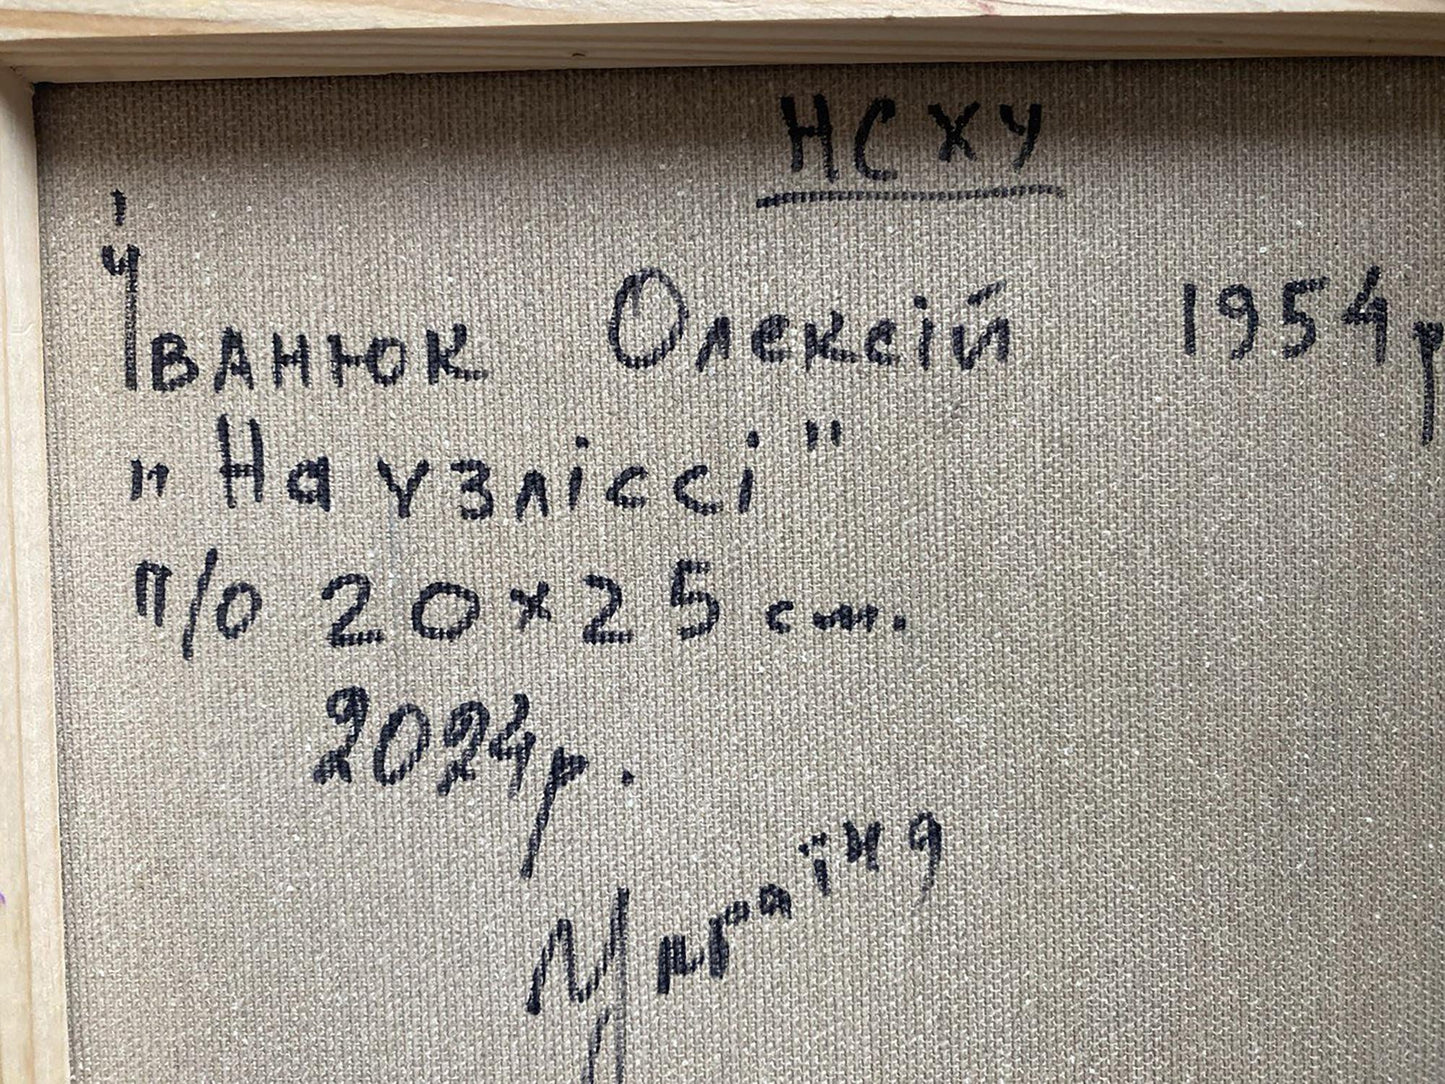 НСХУ
Іванюк Олексій 1954 р
"На узліссі"
п/о 20x25 см.
2024р.
Україна